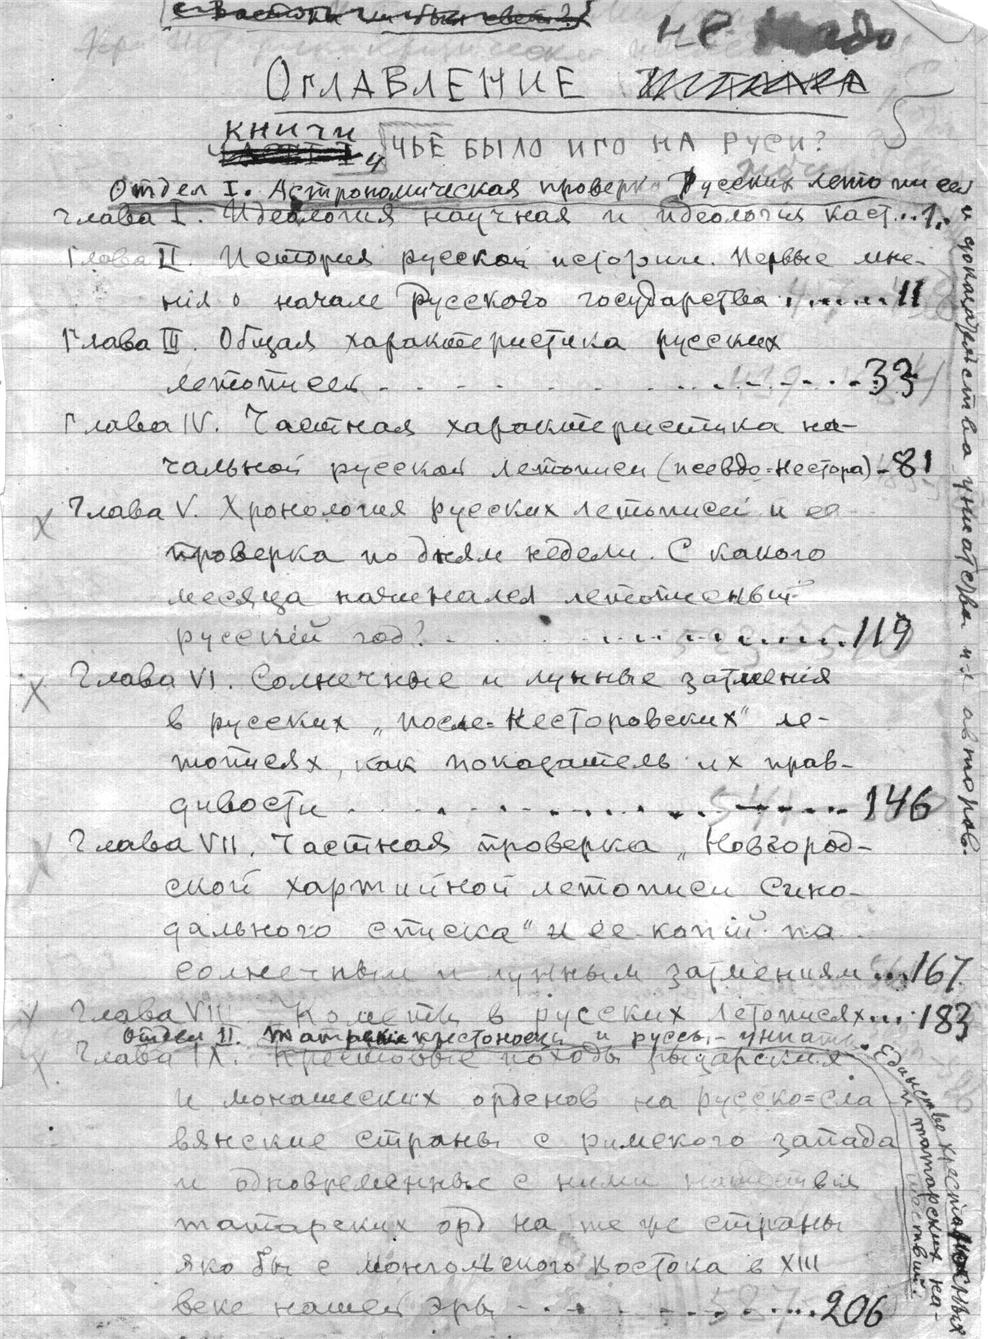 не надо
ОГЛАВЛЕНИЕ
КНИГИ
ЧЬЁ БЫЛО ИГО НА РУСИ?
Отдел I. Астрономическая проверка Русских летописей
и доказательства униатства их авторов.
Глава I. Идеология научная и идеология каст...1.
Глава II. История русской истории. Первые мне-
нія о начале Русского государства......11
Глава III. Общая характеристика русских
летописей..........33
Глава IV. Частная характеристика на-
чальной русской летописи (псевдо=Нестора)-81
Х Глава V. Хронология русских летописей и ее
проверка по дням недели. С какого
месяца начинался летописный
русскій год?..........119
Х Глава VI. Солнечные и лунные затменія
в русских „после-Несторовских" ле-
тописях, как показатель их прав-
дивости..........146
Х Глава VII. Частная проверка „Новгород-
ской харатийной летописи Сино-
дального списка" и ее копій по
солнечным и лунным затмениям...167
Х Глава VIII. Кометы в русских летописях...183
Отдел II. Татары крестоносцы и руссы-униаты.
Единство крестоносных
и татарских на-
шествий.
Х Глава IX. Крестовые походы рыцарских
и монашеских орденов на русско=сла-
вянские страны с римского запада
и одновременные с ними нашествия
татарских орд на те же страны
яко бы с монгольского востока в XIII
веке нашей эры..........206